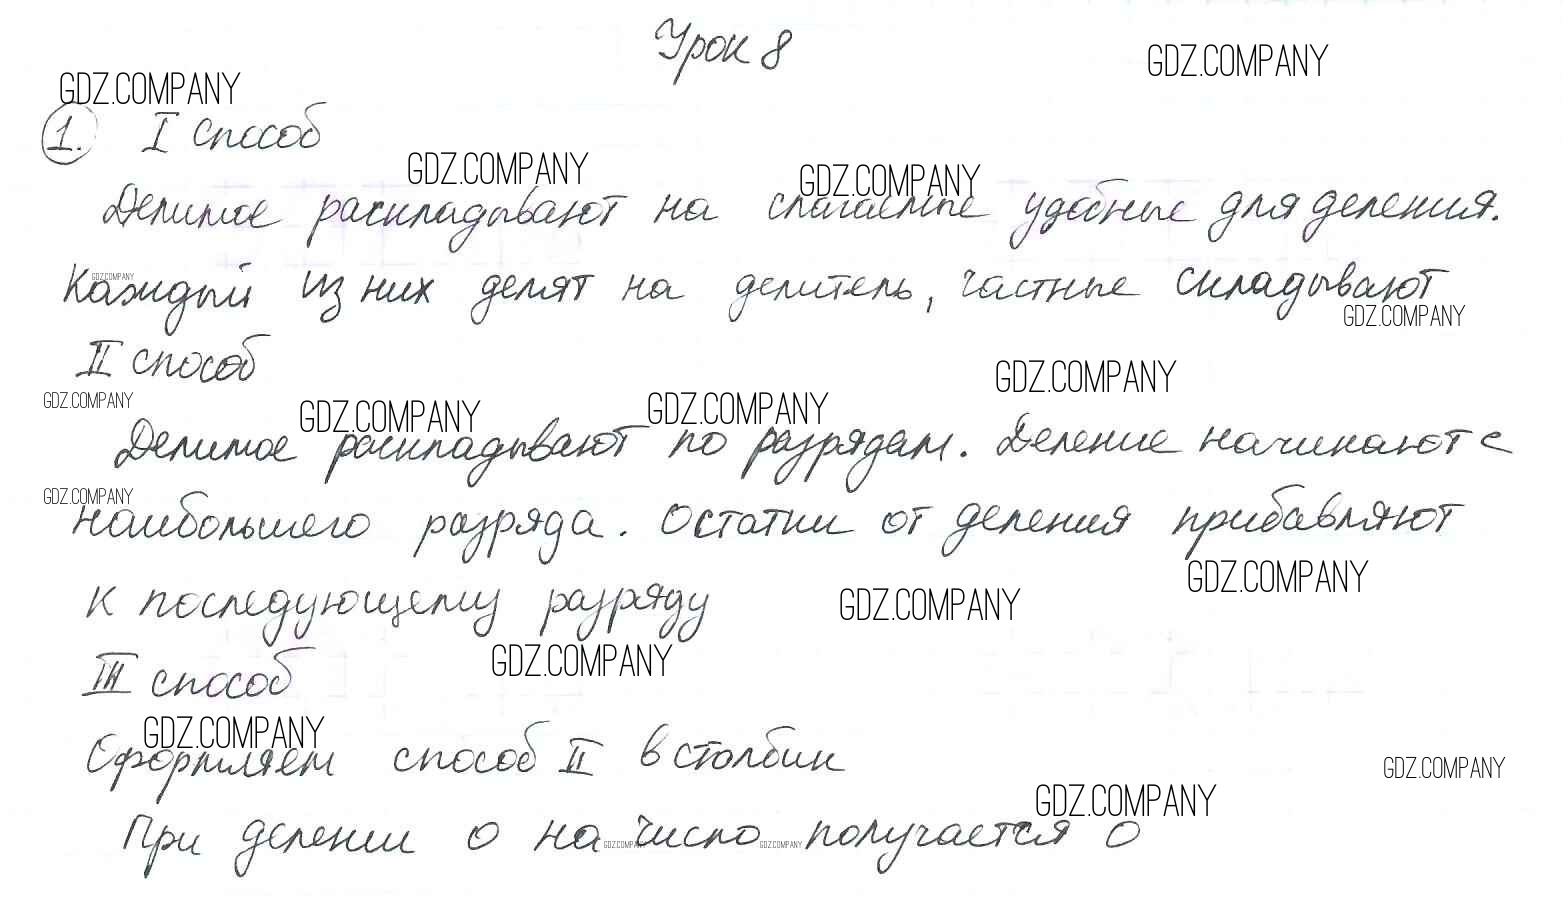 Урок 8
GDZ.COMPANY
GDZ.COMPANY
1. I способ
GDZ.COMPANY
GDZ.COMPANY
Делимое раскладывают на слагаемые удобные для деления.
GDZ.COMPANY
Каждый из них делят на делитель, частные складывают
GDZ.COMPANY
II способ
GDZ.COMPANY
GDZ.COMPANY
GDZ.COMPANY
GDZ.COMPANY
Делимое раскладывают по разрядам. Деление начинают с
GDZ.COMPANY
наибольшего разряда. Остатки от деления прибавляют
GDZ.COMPANY
к последующему разряду
GDZ.COMPANY
GDZ.COMPANY
III способ
GDZ.COMPANY
Оформляем способ II в столбик
GDZ.COMPANY
GDZ.COMPANY
При делении 0 на число получается 0
GDZ.COMPANY
GDZ.COMPANY